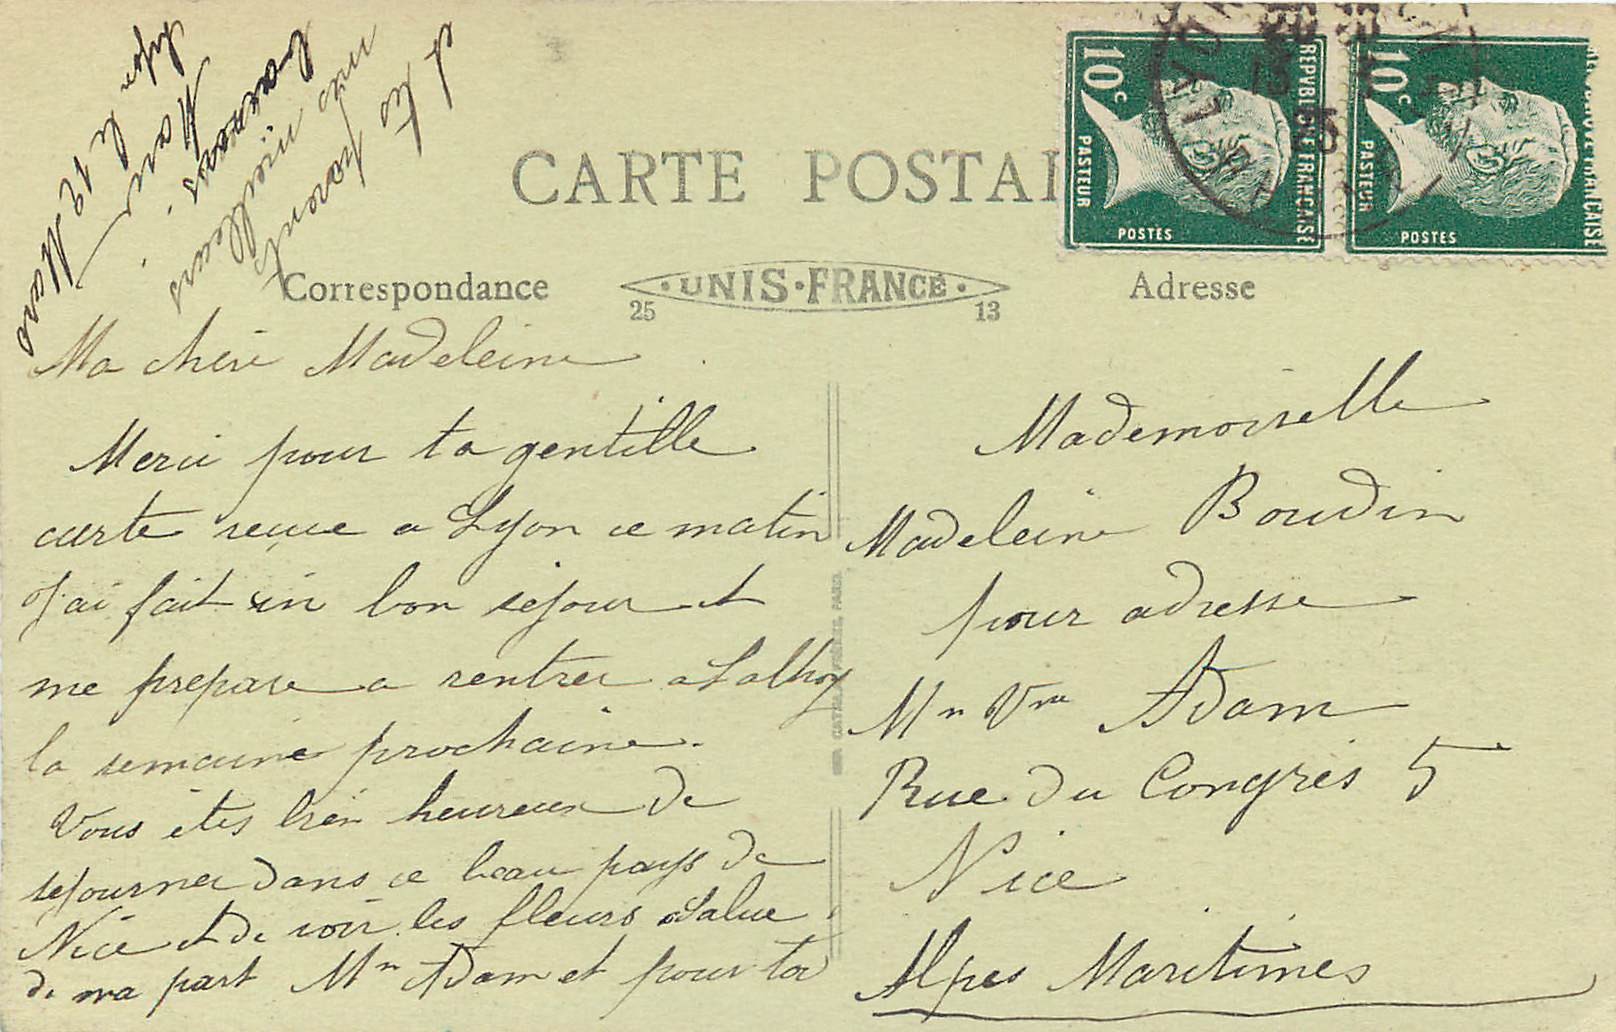 CARTE POSTAL
10c
REPVBLIQUE FRANÇAISE
PASTEUR
POSTES
10c
FRANÇAISE
PASTEUR
POSTES
Correspondance
UNIS·FRANCE·
25
13
Adresse
Ma chère Madeleine
Merci pour ta gentille
carte reçue a Lyon ce matin
J'ai fait un bon séjour et
me prepare a rentrer a
la semaine prochaine.
Vous êtes bien heureux de
séjourner dans ce beau pays de
Nice et de voir les fleurs. Salue
de ma part Mm Adam et pour toi
et tes parents
mes meilleurs
baisers
Marie
Lyon le 12 Mars
Mademoiselle
Madeleine Boudin
pour adresse
Mm Vve Adam
Rue du Congrès 5
Nice
Alpes Maritimes